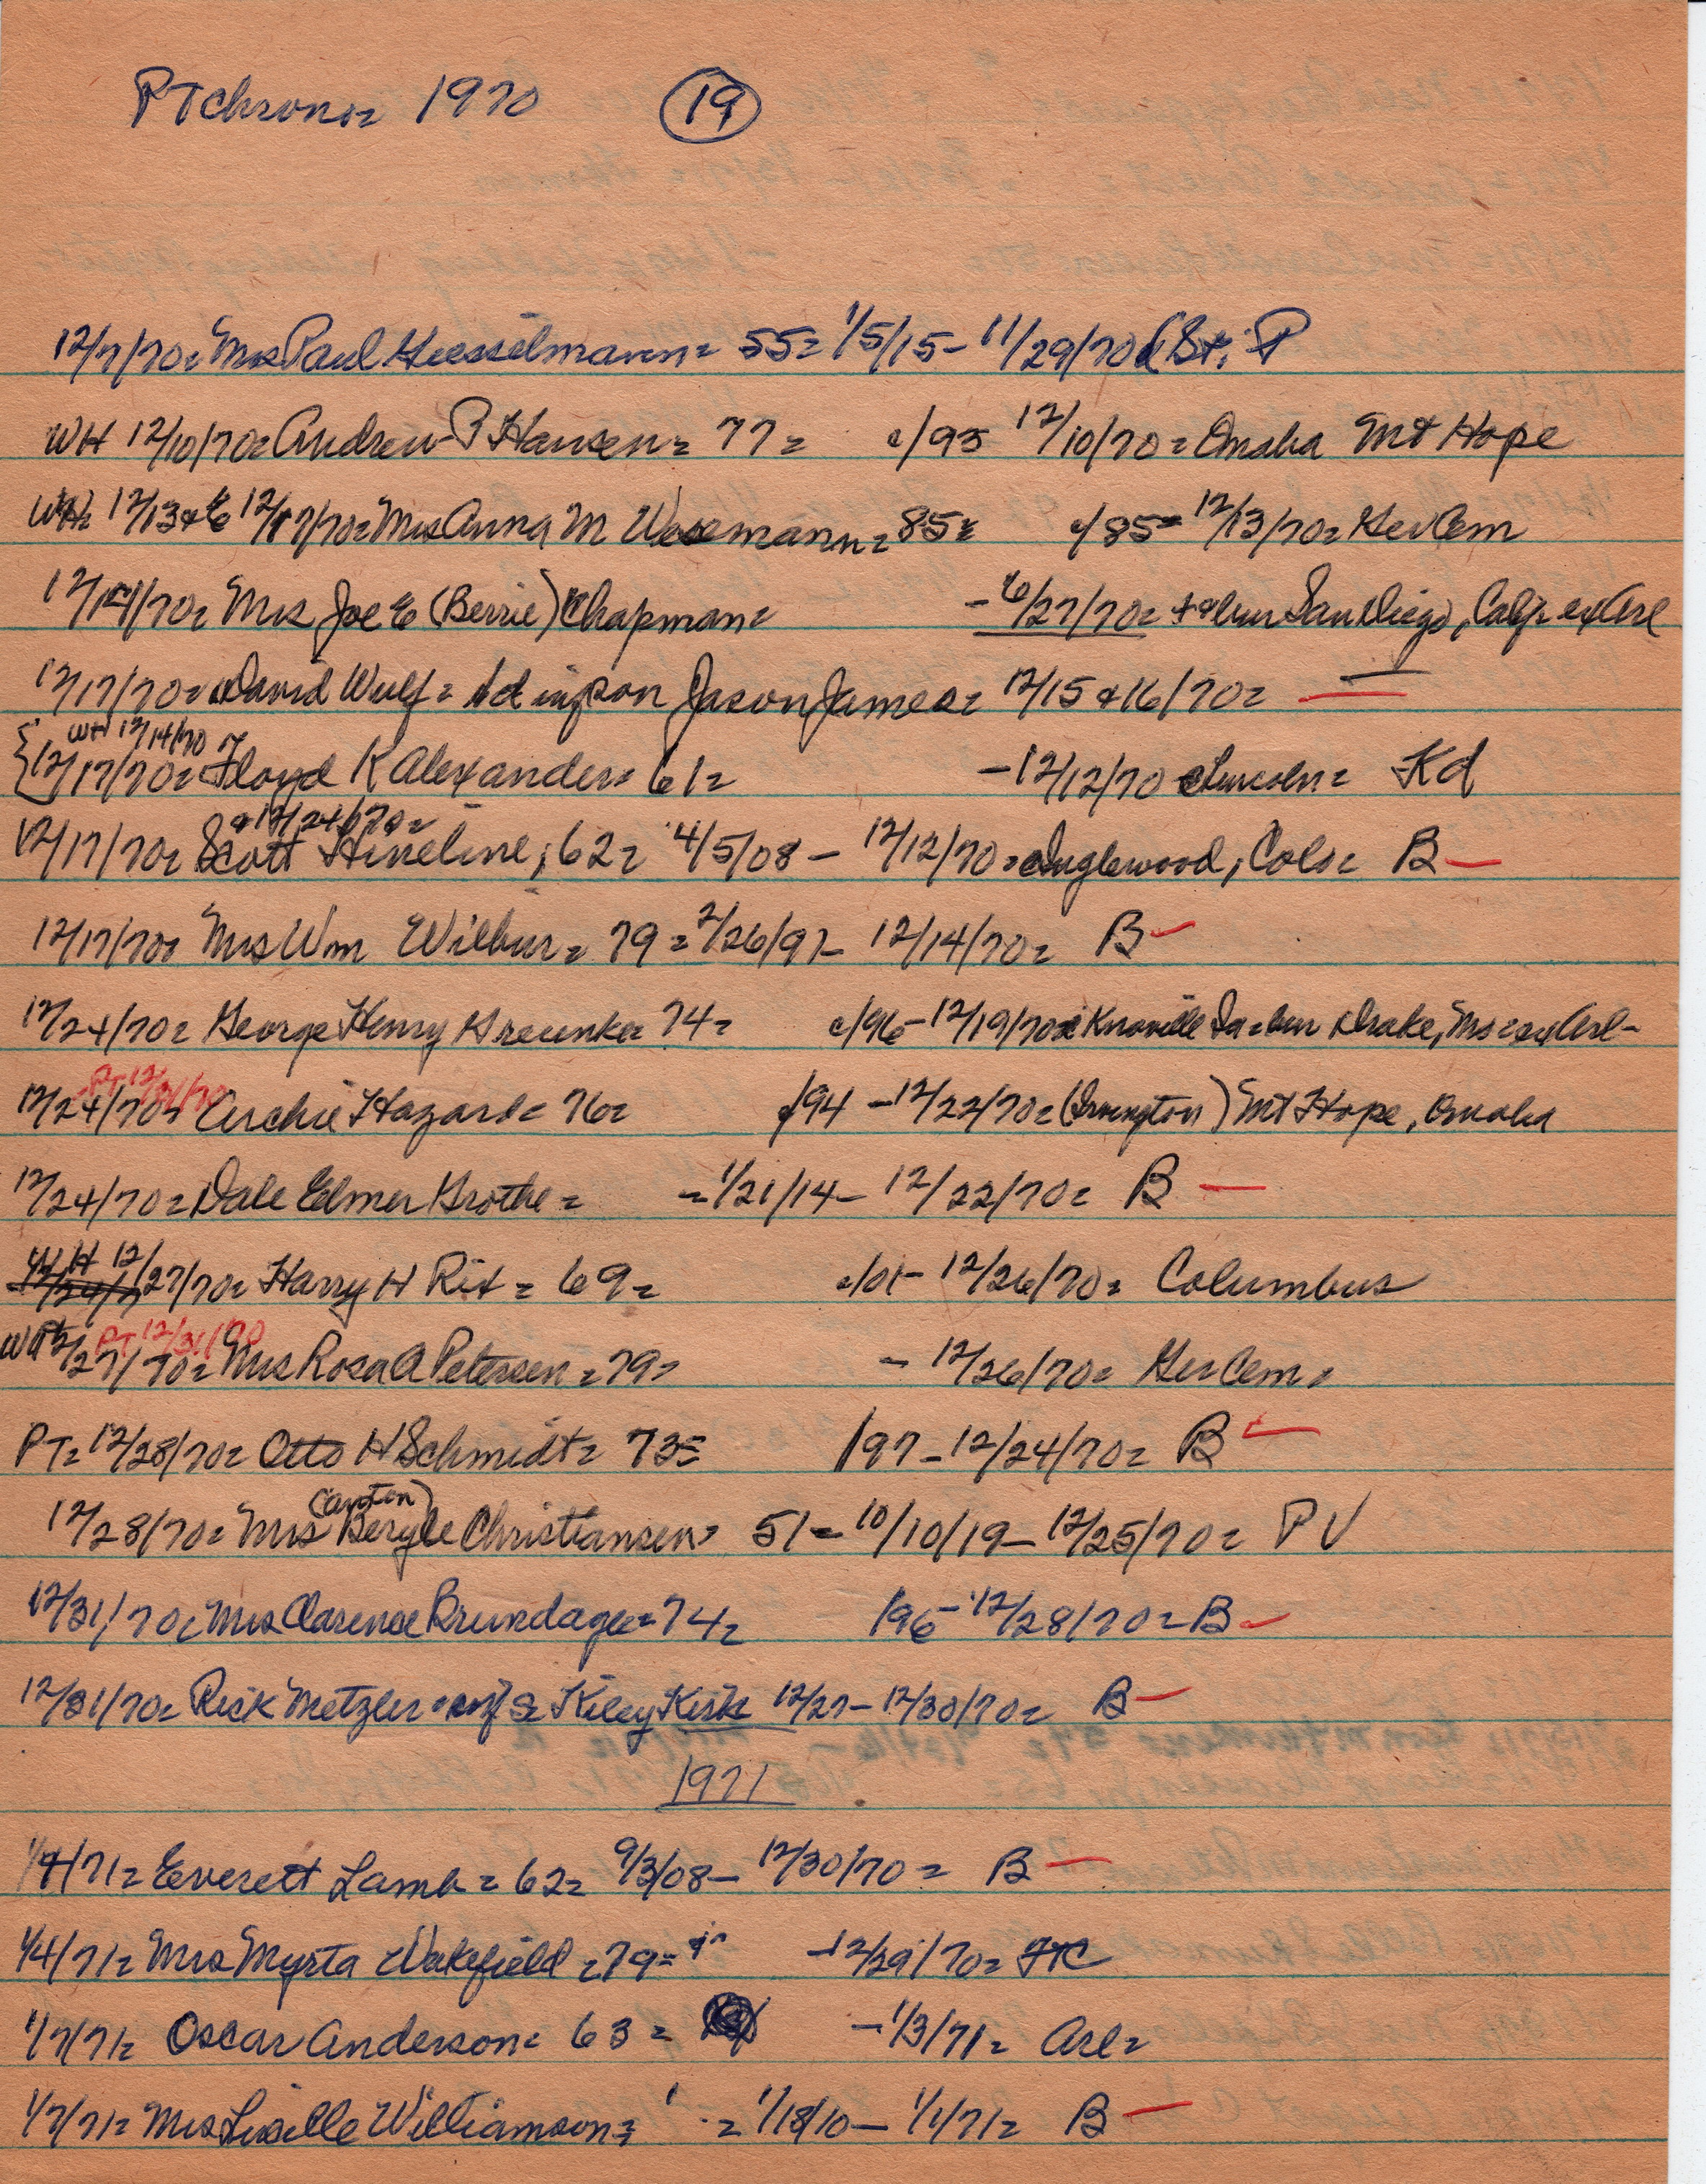 PT chrono= 1970 (19)
12/7/70= Mrs Paul Hesselmann= 55= 1/5/15- 11/29/70 (St. P
WH 12/10/70= Andrew P Hansen= 77= c/93 12/10/70= Omaha Mt Hope
WH= 12/13 & E 12/17/70= Mrs Anna M Wesemann= 85= c/85= 12/13/70= Ger Cem
12/14/70= Mrs Joe E (Berrie) Chapman= -6/27/70= + bur San Diego, Calif= ex Arl
12/17/70= David Wulf= inf son Jason James= 12/15 & 16/70= —
WH 12/14/70
{12/17/70= Floyd K Alexander= 61= -12/12/70 Lincoln= Kd
& 12/24/70=
12/17/70= Scott Hineline; 62= 4/5/08- 12/12/70= Inglewood, Colo= B —
12/17/70= Mrs Wm Wilbur= 79= 2/26/91- 12/14/70= B —
12/24/70= George Henry Greunke= 74= c/96- 12/19/70= Knoxville Ia= bur Drake, Mo= ex Arl-
PT 12/31/70
12/24/70= Archie Hazard= 76= c/94 -12/22/70= (Irvington) Mt Hope, Omaha
12/24/70= Dale Elmer Grothe= =1/21/14- 12/22/70= B —
WH 12/27/70= Harry H Rix= 69= c/01- 12/26/70= Columbus
PT 12/31/70
WH 12/27/70= Mrs Rosa A Petersen= 79= - 12/26/70= Ger Cem=
PT= 12/28/70= Otto H Schmidt= 73= /97- 12/24/70= B —
(Canton)
12/28/70= Mrs Beryle Christiansen= 51= 10/10/19- 12/25/70= PV
12/31/70= Mrs Clarence Brundage= 74= /96- 12/28/70= B —
12/31/70= Rick Metzler= inf s= Kiley Kirk 12/27- 12/30/70= B —
1971
1/4/71= Everett Lamb= 62= 9/3/08- 12/30/70= B —
1/4/71= Mrs Myrta Wakefield= 79= -12/29/70= FC
1/7/71= Oscar Anderson= 63= -1/3/71= Arl=
1/7/71= Mrs Lucille Williamson= =1/18/10- 1/1/71= B —